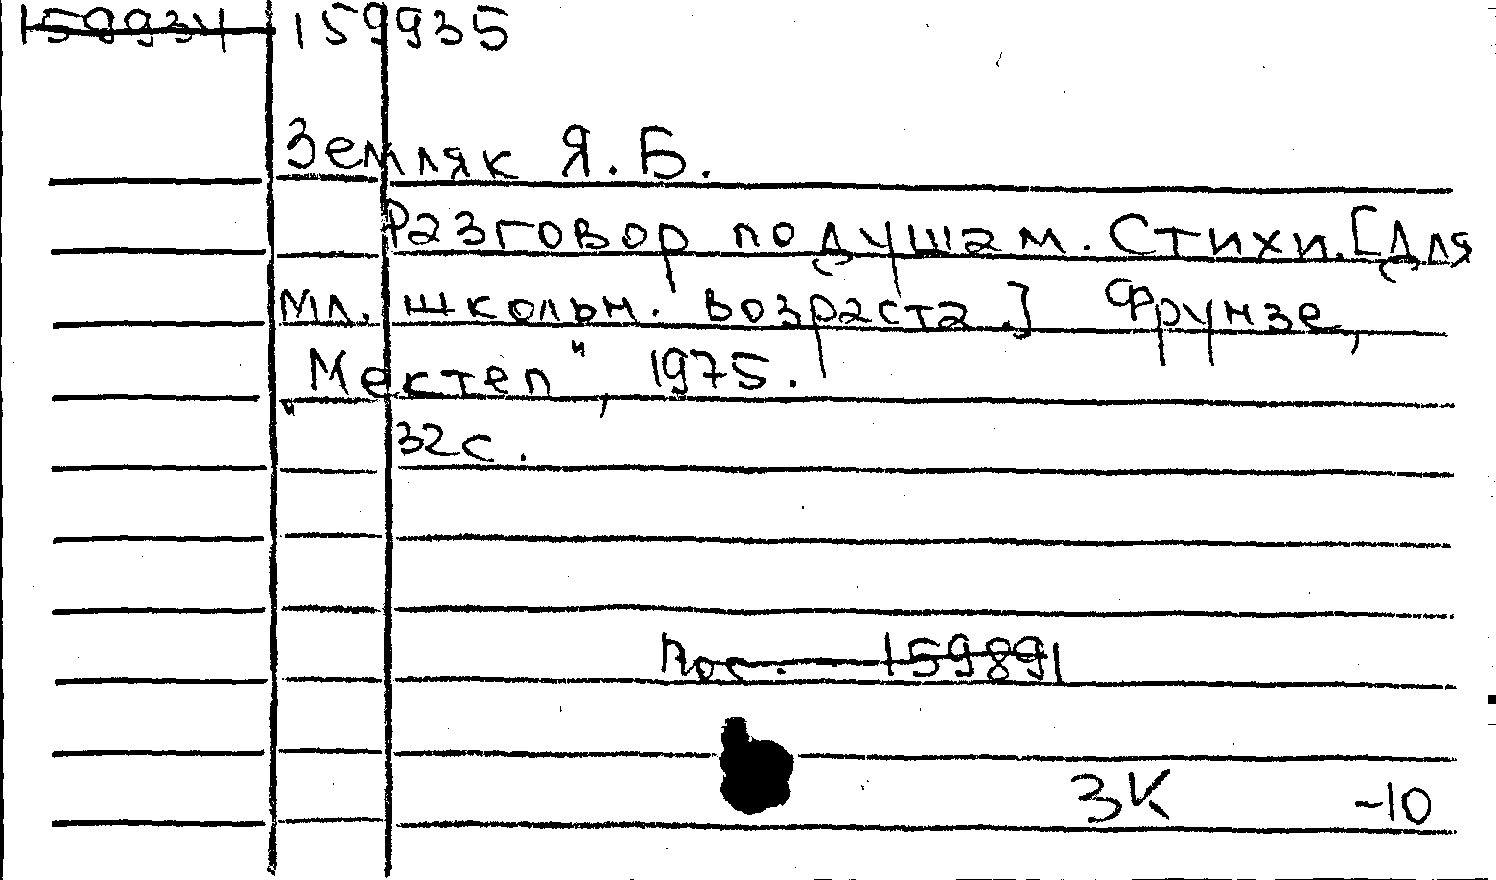 159934 159935
Земляк Я. Б.
Разговор по душам. Стихи. [Для
мл. школьн. возраста.] Фрунзе,
„Мектеп", 1975.
32с.
Пос. 159891
3К -10